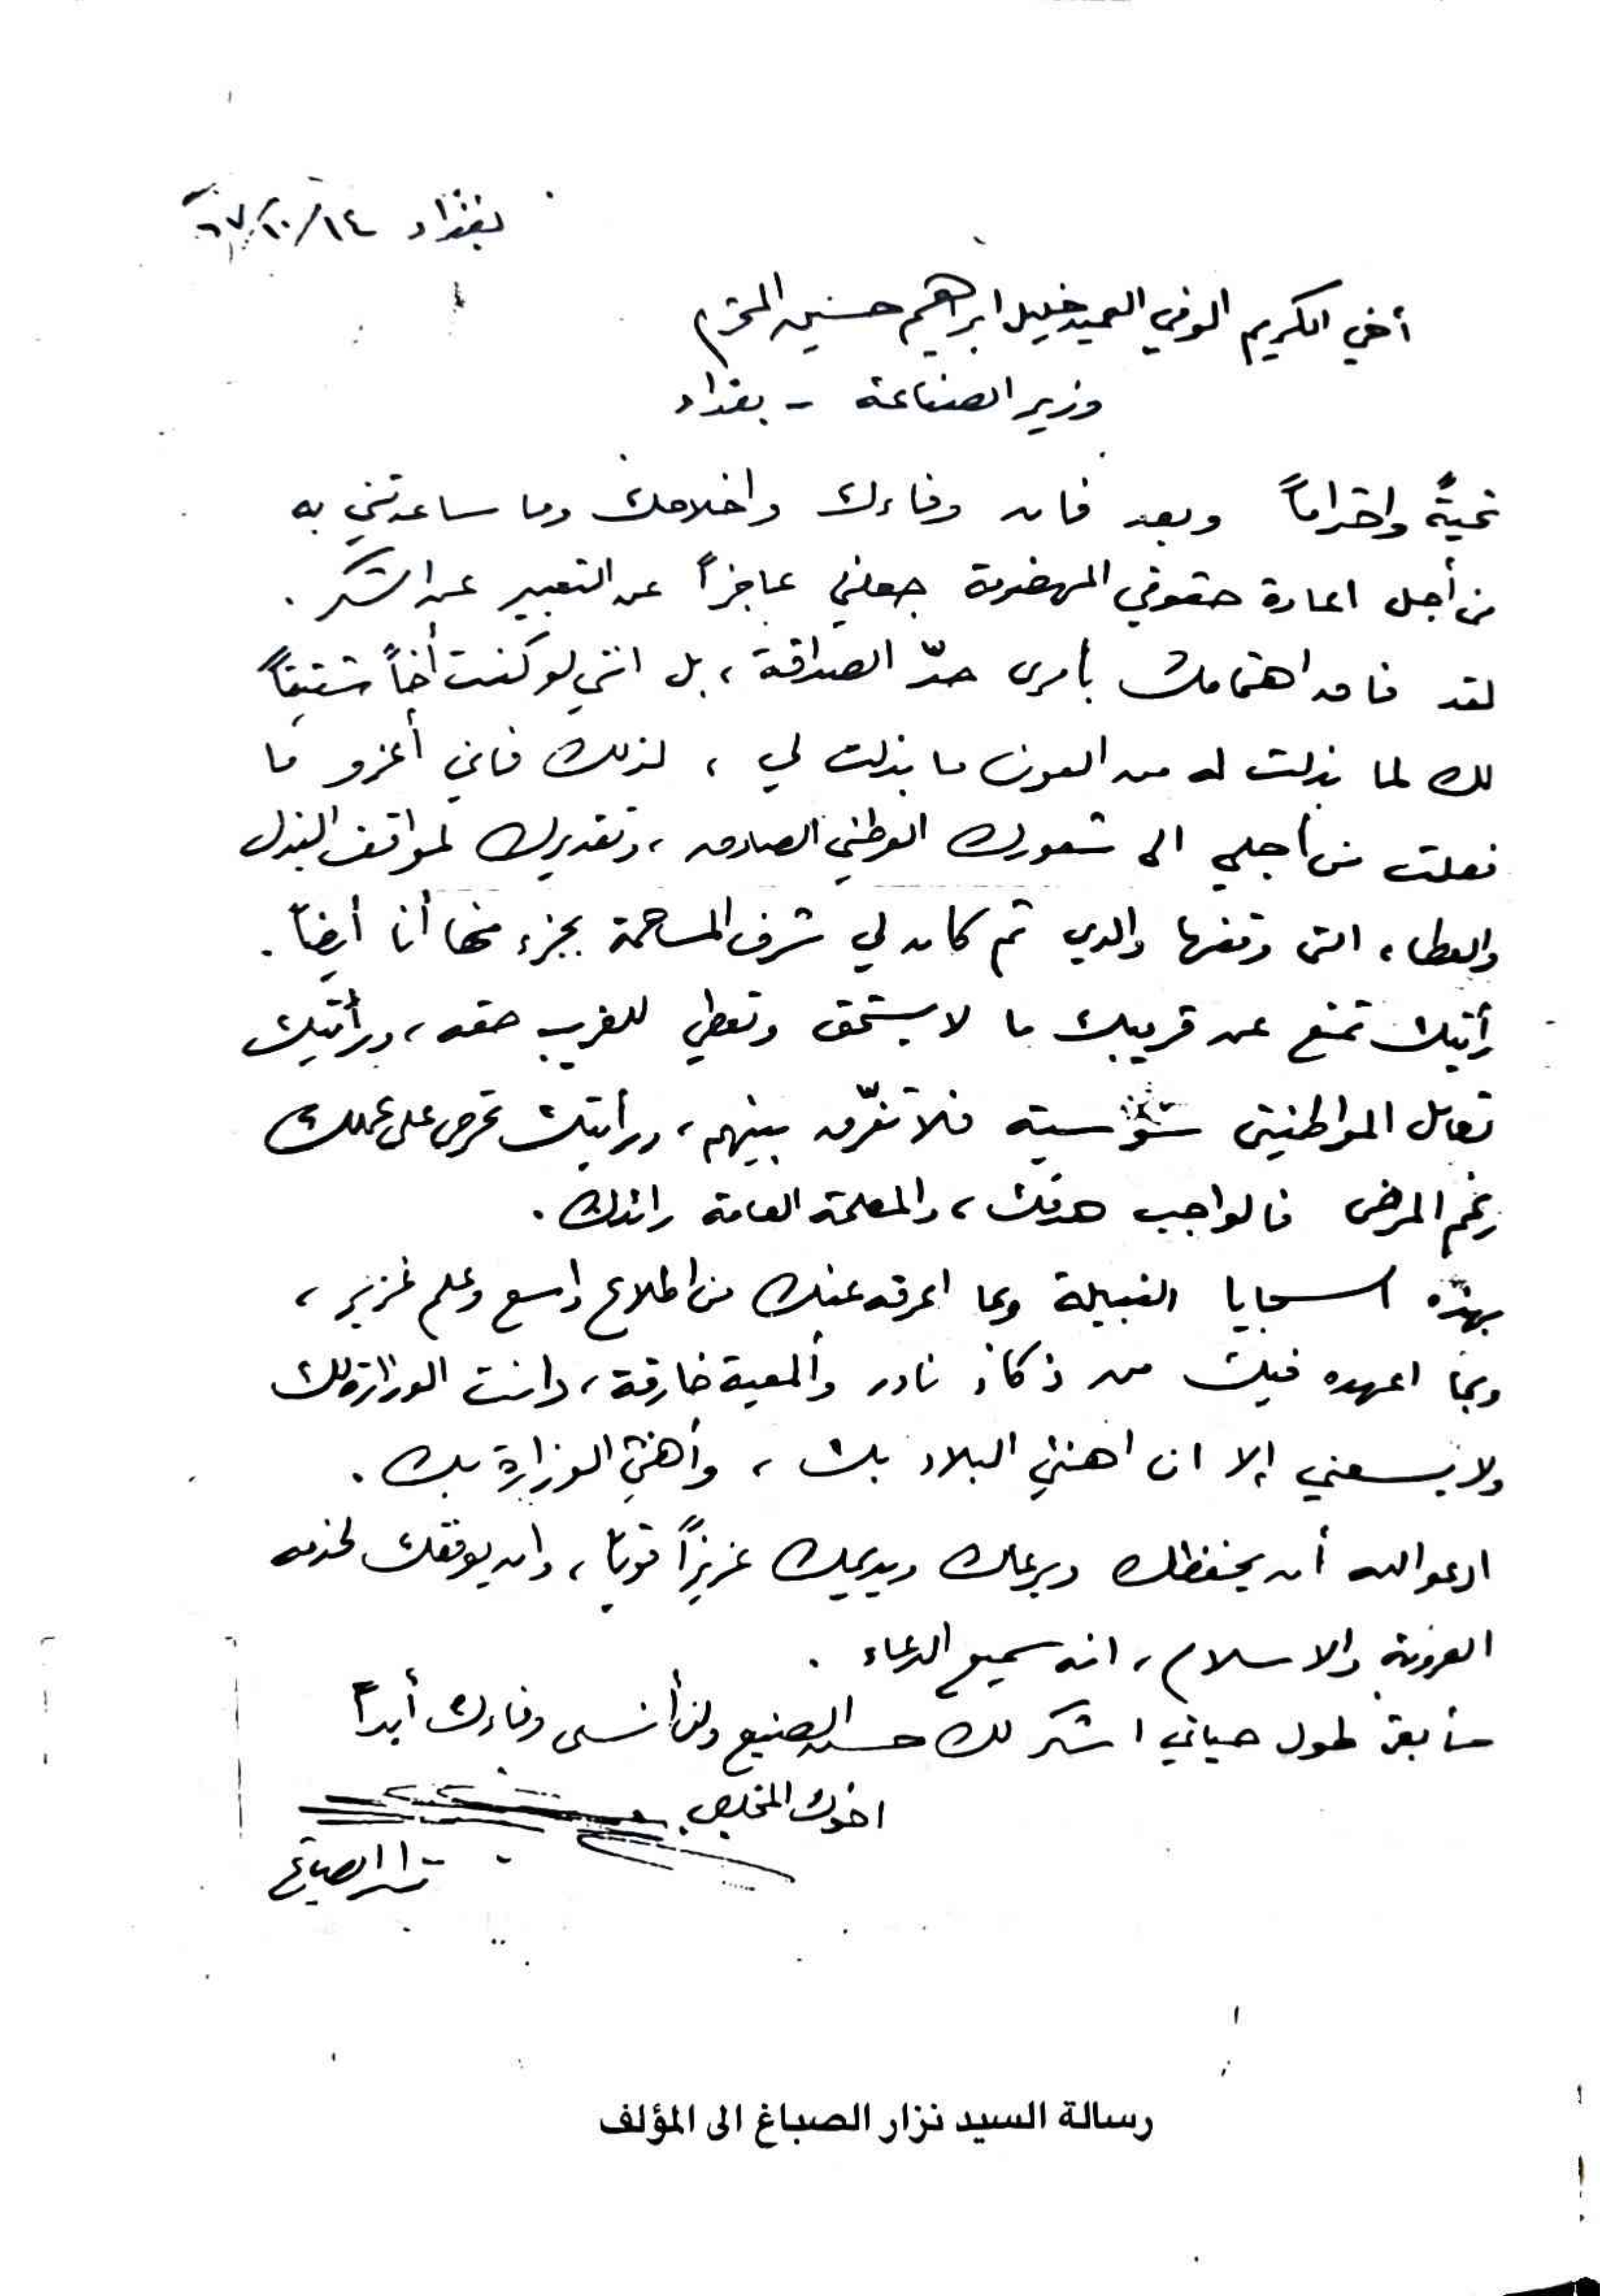 بغداد ١٤/١٠/٦٧
أخي الكريم الوفي العميد خليل ابراهيم حسين المحترم
وزير الصناعة - بغداد
تحيةً واحتراماً وبعد فان وفاءك واخلاصك وما ساعدتني به
من أجل اعادة حقوقي المهضومة جعلني عاجزاً عن التعبير عن الشكر .
لقد فاق اهتمامك بأمري حدّ الصداقة ، بل انني لو كنت أخاً شقيقاً
لك لما بذلت له من العون ما بذلت لي ، لذلك فاني أعزو ما
فعلت من أجلي الى شعورك الوطني الصادق ، وتقديرك لمواقف البذل
والعطاء التي وقفها والدي ثم كان لي شرف المساهمة بجزء منها أنا أيضاً .
رأيتك تمنع عن قريبك ما لا يستحق وتعطي للغريب حقه ، ورأيتك
تعامل المواطنين سواسية فلا تفرّق بينهم ، ورأيتك تحرص على عملك
رغم المرض فالواجب هدفك ، والمصلحة العامة رائدك .
بهذه السجايا النبيلة وبما اعرفه عنك من اطلاع واسع وعلم غزير ،
وبما اعهده فيك من ذكاء نادر وألمعية خارقة ، دانت الوزارة لك
ولا يسعني إلا ان اهنئ البلاد بك ، وأهنئ الوزارة بك .
ادعو الله أن يحفظك ويرعاك ويديمك عزيزاً قوياً ، وان يوفقك لخدمة
العروبة والاسلام ، انه سميع الدعاء .
سأبقى طول حياتي اشكر لك حسن الصنيع ولن أنسى وفاءك أبداً
اخوك المخلص
نزار الصباغ
رسالة السيد نزار الصباغ الى المؤلف